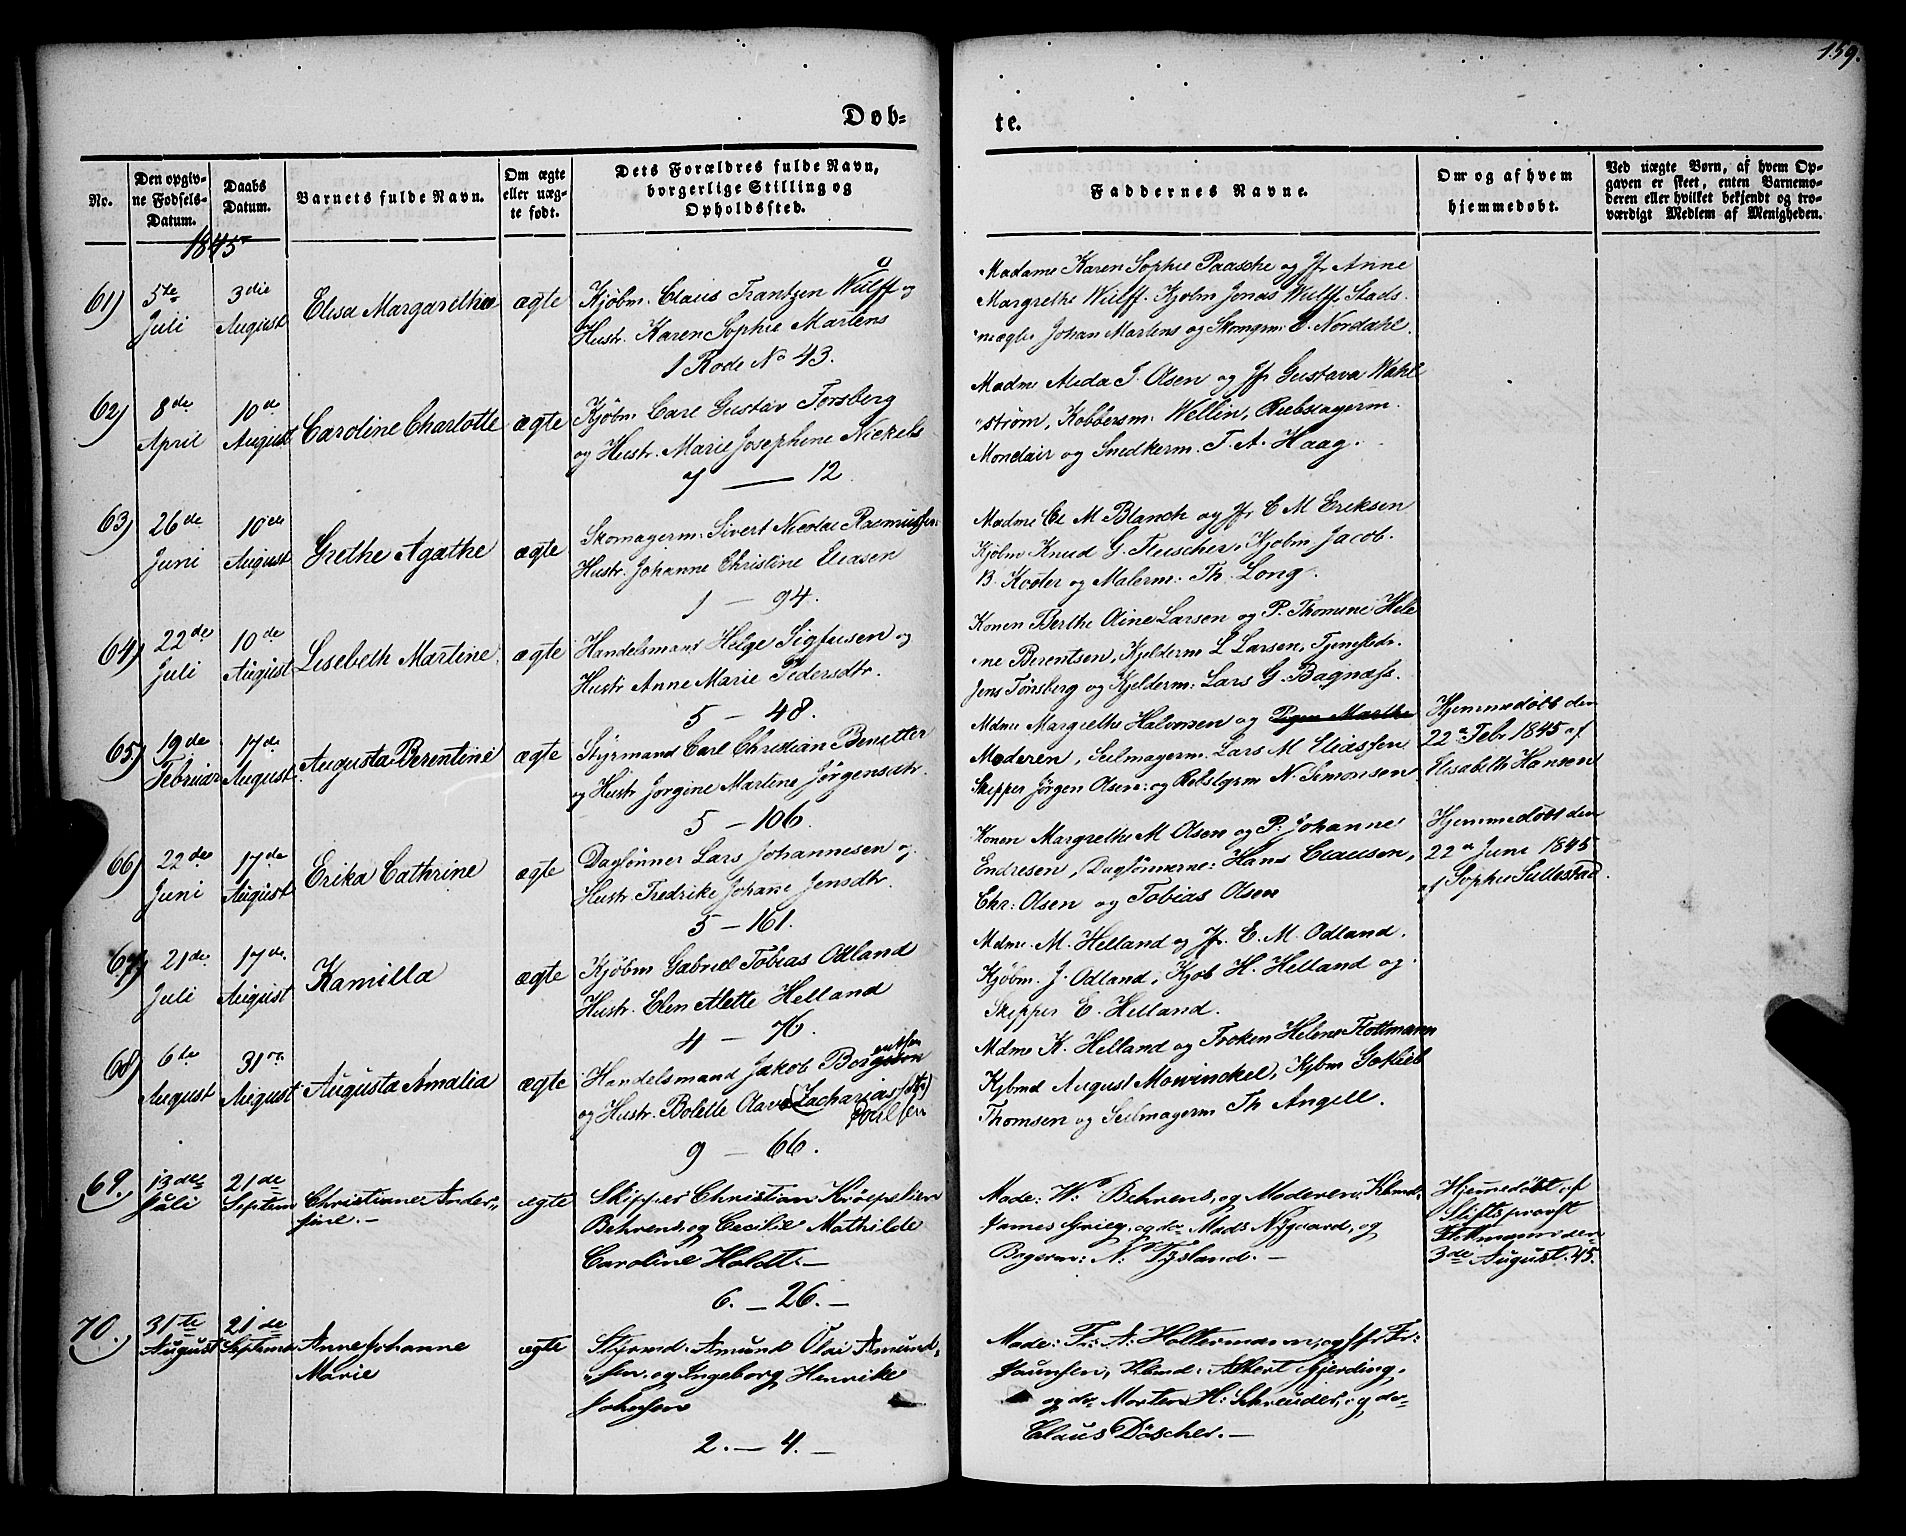 159.
Døb-
te.
No.
Den opgiv-
ne Fødsels-
Datum.
Daabs
Datum.
Barnets fulde Navn.
Om ægte
eller uæg-
te født.
Dets Forældres fulde Navn,
borgerlige Stilling og
Opholdssted.
Faddernes Navne.
Om og af hvem
hjemmedøbt.
Ved uægte Børn, af hvem Op-
gaven er skeet, enten Barnemo-
deren eller hvilket bekjendt og tro-
værdigt Medlem af Menigheden.
1845
61) 5te Juli
3die August
Elisa Margarethe
ægte
Kjøbm. Claus Frantzen Wulff og
Hustr. Karen Sophie Martens
1 Rode No 43.
Madame Karen Sophie Paasche og Jfr Anne
Margrethe Wulff. Kjøbm Jonas Wulff. Stads-
mægle. Johan Martens og Skomgrm: E. Nordahl.
62) 8de April
10de August
Caroline Charlotte
ægte
Kjøbm. Carl Gustav Forsberg
og Hustr. Marie Josephine Nickels
7 — 12
Madme Alida J. Olsen og Jfr Gustava Wahl
strøm, Kobbersm: Wellin, Rebslagerm.
Mondair og Snedkerm. T. A. Haag.
63) 26de Juni
10de August
Grethe Agathe
ægte
Skomagerm: Sivert Nicolai Rasmussen
Hustr. Johanne Christine Eliasen
1 — 94.
Madme Cl M Blanch og Jfr C M Eriksen
Kjøbm Knud G. Fleischer, Kjøbm Jacob
B. Koster og Malerm. Th. Long.
64) 22de Juli
10de August
Lisebeth Martine
ægte
Handelsmand Helge Sigfusen og
Hustr Anne Marie Pedersdtr.
5 — 48.
Konen Berthe Oline Larsen og P. Thomine Hele
ne Berentsen, Kjelderm L Larsen, Tjenestedr.
Jens Forsberg og Kjelderm: Lars G. Bagnæss.
65) 19de Februar
17de August
Augusta Berentine
ægte
Styrmand Carl Christian Benetter
og Hustr Jørgine Martine Jørgensdtr.
5 — 106.
Mdme Margrethe Halvorsen og Pigen Marthe
Moderen, Seilmagerm. Lars M Eliassen
Skipper Jørgen Olsen: og Rebslgrm N. Simonsen
Hjemmedøbt den
22de Febr 1845 af
Elisabeth Hansen
66) 22de Juni
17de August
Erika Cathrine
ægte
Daglønner Lars Johannesen og
Hustr. Fredrike Johane Jensdtr.
5 — 161.
Konen Margrethe M Olsen og P. Johanne
Endresen, Daglønnerne: Hans Clausen,
Chr: Olsen og Tobias Olsen
Hjemmedøbt den
22de Juni 1845
af Sophie Sullestad.
67) 21de Juli
17de August
Kamilla
ægte
Kjøbm Gabriel Tobias Odland
Hustr. Elen Alette Helland
4 — 76.
Mdme. M. Helland og Jfr. E. M. Odland.
Kjøbm. J. Odland, Kjøb H. Helland og
Skipper E. Helland.
68) 6te August
31te August
Augusta Amalia
ægte
Handelsmand Jakob Borgen
og Hustr. Bolette Olava (Zachariasdtr)
Poulsen
9 — 66.
Mdme K. Helland og Frøken Helene Flottmann
Kjbmd August Mowinckel, Kjbm Gotlieb
Thomsen og Seilmagerm Th Angell.
69.) 13de Juli
21de Septem
Christiane Ander-
sine. —
ægte
Skipper Christian Kröepelien
Behrens, og Cecilie Mathilde
Caroline Holdt. —
6. — 26. —
Made: W: Behrens, og Moderen: Kbmd.
James Grieg, og do Mads Nygaard, og
Bagerm: N: Tysland. —
Hjemedøbt af
Stiftsprovst
den
3de August. 45.
70.) 31te August
21de Septem
Anne Johanne
Marie
ægte
Styrmd. Amund Olai Amund-
sen. og Ingeborg Henrike
Johnsen
2. — 4. —
Made: Fr: A: Holtermann, og Jfr Fr:
Kbmd: Albert Gjerding,
og do Morten H: Schreuder, og do
Claus Döscher. —